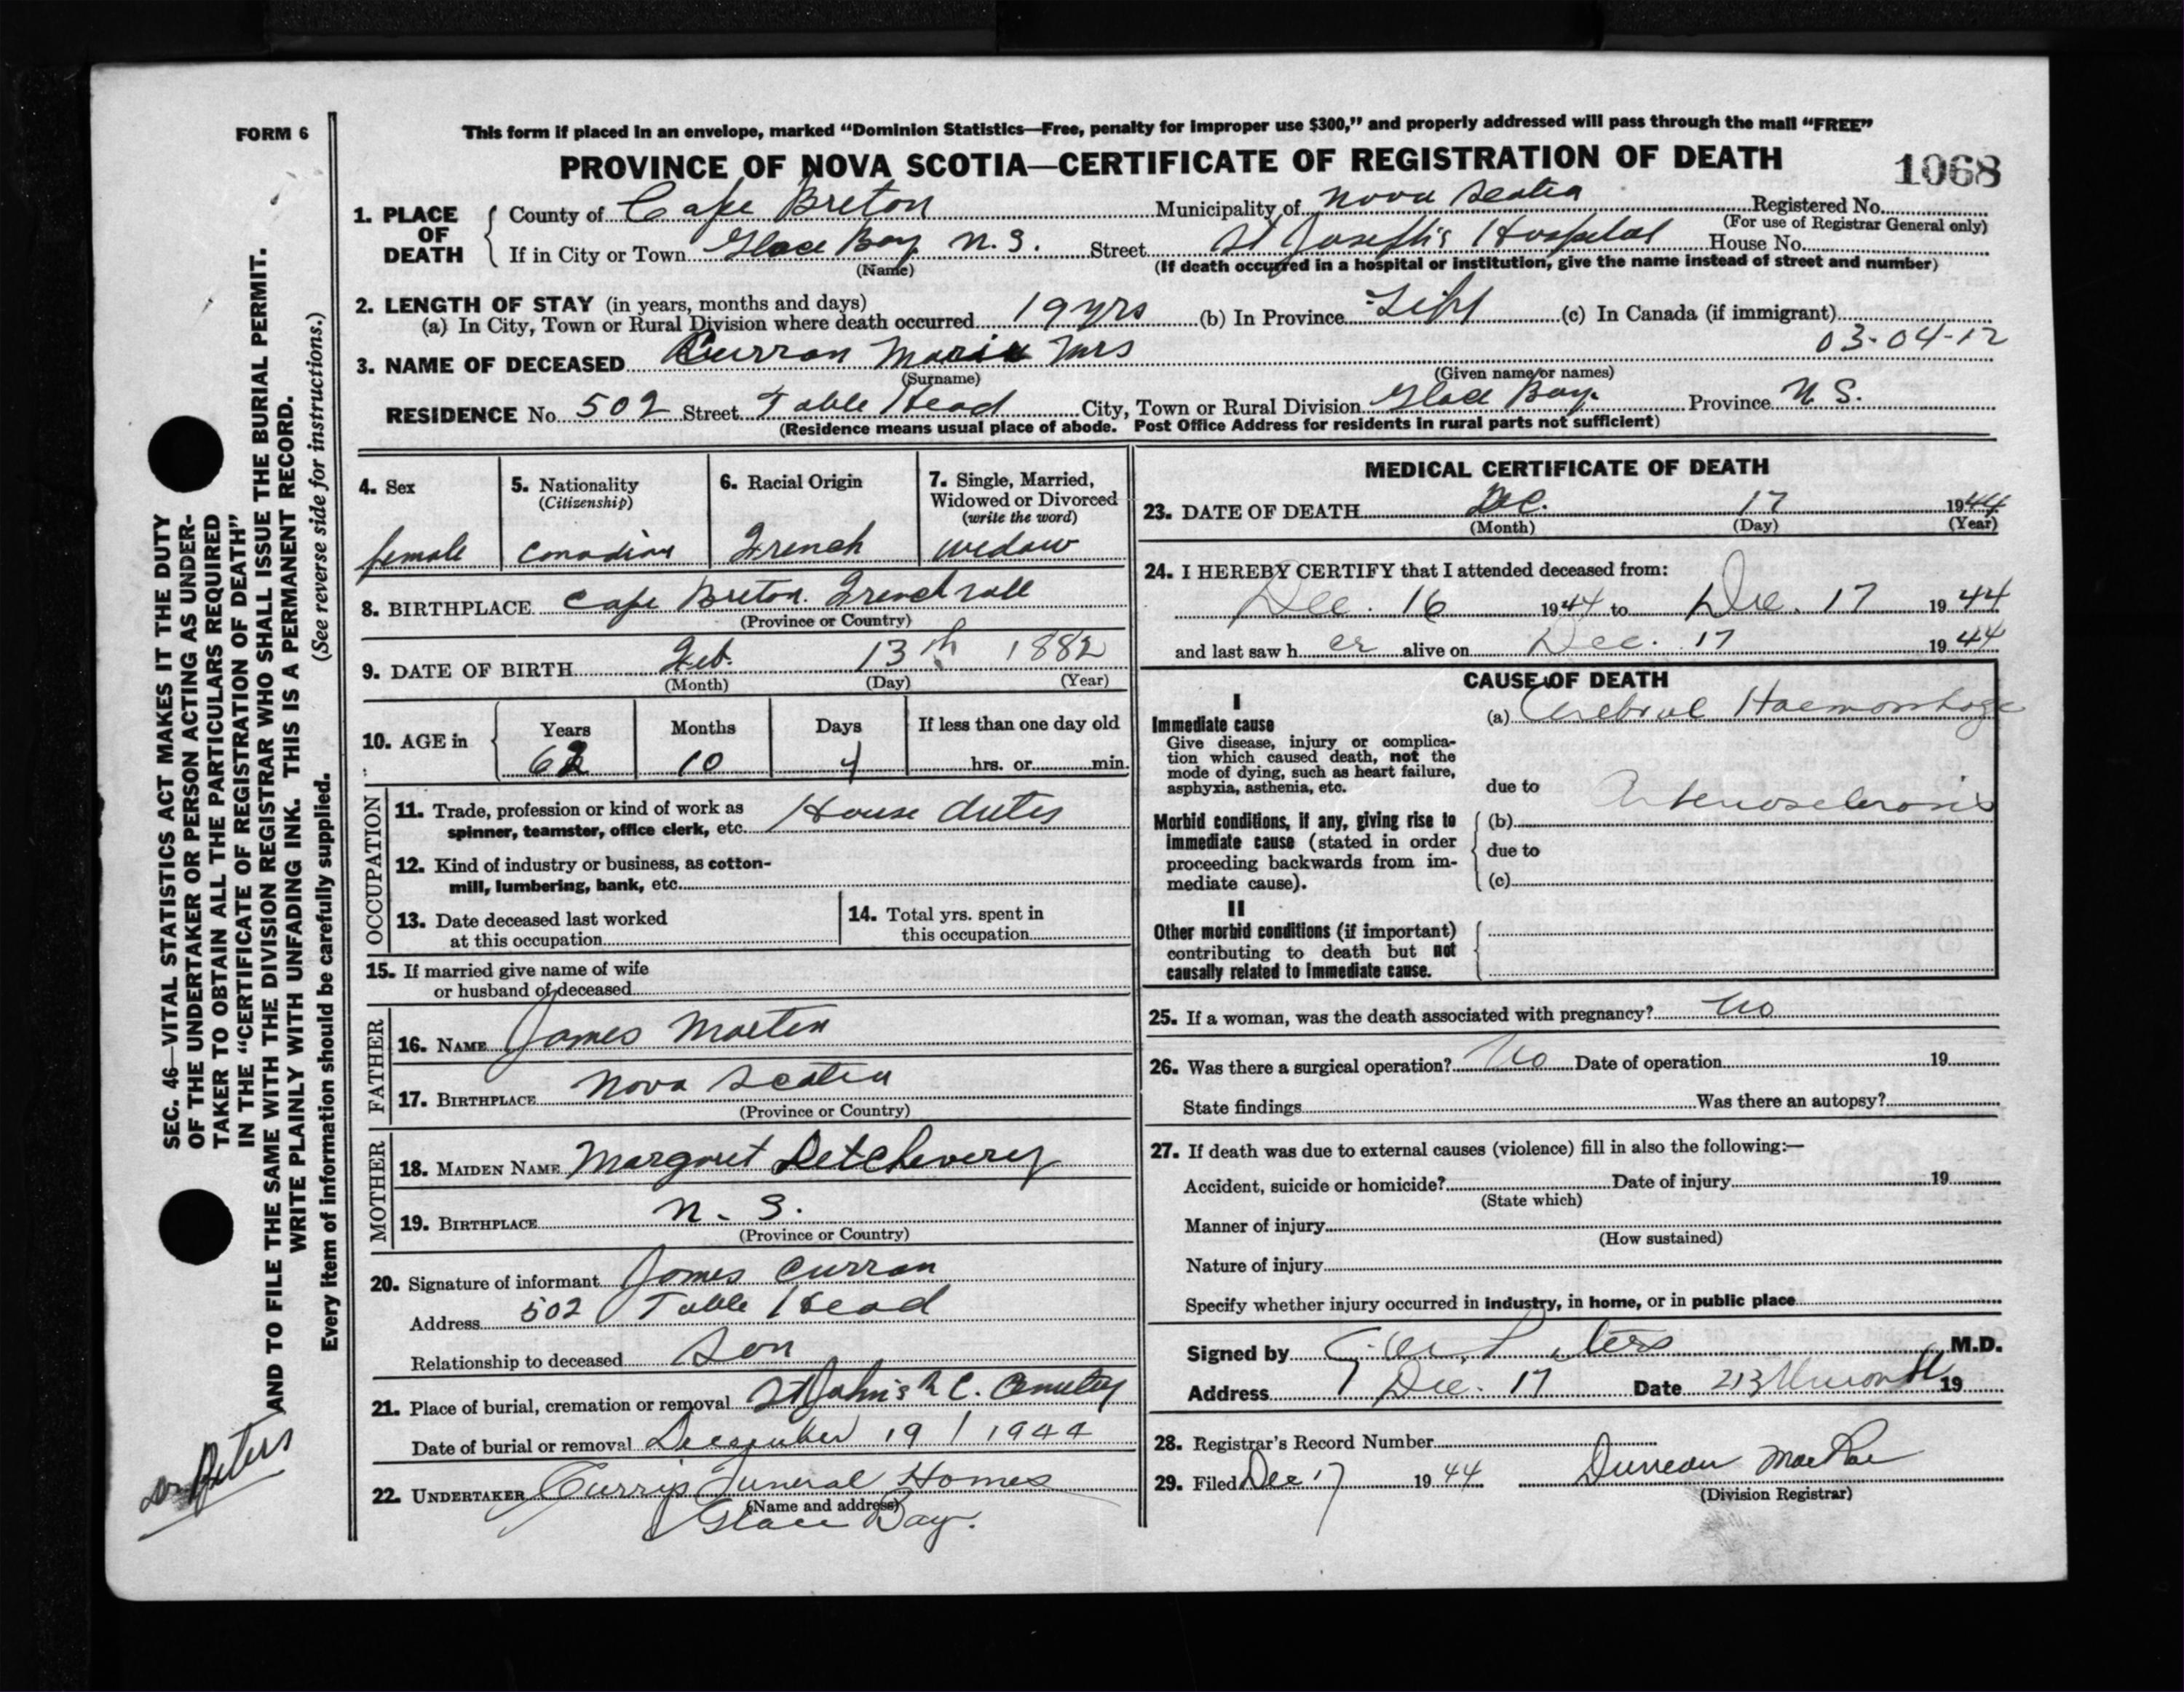 FORM 6
This form if placed in an envelope, marked “Dominion Statistics—Free, penalty for improper use $300,” and properly addressed will pass through the mail “FREE”
PROVINCE OF NOVA SCOTIA—CERTIFICATE OF REGISTRATION OF DEATH
1068
1. PLACE OF DEATH
County of Cape Breton Municipality of Nova Scotia Registered No.
(For use of Registrar General only)
If in City or Town Glace Bay N.S. Street St Joseph's Hospital House No.
(Name) (If death occurred in a hospital or institution, give the name instead of street and number)
2. LENGTH OF STAY (in years, months and days)
(a) In City, Town or Rural Division where death occurred 19 yrs (b) In Province Life (c) In Canada (if immigrant)
03-04-12
3. NAME OF DECEASED Curran Marie Mrs
(Surname) (Given name or names)
RESIDENCE No. 502 Street Table Head City, Town or Rural Division Glace Bay. Province N.S.
(Residence means usual place of abode. Post Office Address for residents in rural parts not sufficient)
4. Sex
female
5. Nationality
(Citizenship)
Canadian
6. Racial Origin
French
7. Single, Married,
Widowed or Divorced
(write the word)
widow
8. BIRTHPLACE Cape Breton. Frenchvale
(Province or Country)
9. DATE OF BIRTH Feb. 13th 1882
(Month) (Day) (Year)
10. AGE in
Years Months Days If less than one day old
62 10 4 hrs. or min.
OCCUPATION
11. Trade, profession or kind of work as
spinner, teamster, office clerk, etc. House duties
12. Kind of industry or business, as cotton-
mill, lumbering, bank, etc.
13. Date deceased last worked
at this occupation
14. Total yrs. spent in
this occupation
15. If married give name of wife
or husband of deceased
FATHER
16. NAME James Martin
17. BIRTHPLACE Nova Scotia
(Province or Country)
MOTHER
18. MAIDEN NAME Margaret Detcheverry
19. BIRTHPLACE N.S.
(Province or Country)
20. Signature of informant James Curran
Address 502 Table Head
Relationship to deceased Son
21. Place of burial, cremation or removal St John's R C. Cemetery
Date of burial or removal December 19 / 1944
22. UNDERTAKER Curry's Funeral Homes
(Name and address)
Glace Bay.
MEDICAL CERTIFICATE OF DEATH
23. DATE OF DEATH Dec. 17 1944
(Month) (Day) (Year)
24. I HEREBY CERTIFY that I attended deceased from:
Dec. 16 1944 to Dec. 17 1944
and last saw h er alive on Dec. 17 1944
CAUSE OF DEATH
I
Immediate cause
Give disease, injury or complica-
tion which caused death, not the
mode of dying, such as heart failure,
asphyxia, asthenia, etc.
(a) Cerebral Haemorrhage
due to
Arteriosclerosis
Morbid conditions, if any, giving rise to
immediate cause (stated in order
proceeding backwards from im-
mediate cause).
(b)
due to
(c)
II
Other morbid conditions (if important)
contributing to death but not
causally related to immediate cause.
25. If a woman, was the death associated with pregnancy? no
26. Was there a surgical operation? No Date of operation 19
State findings Was there an autopsy?
27. If death was due to external causes (violence) fill in also the following:—
Accident, suicide or homicide? Date of injury 19
(State which)
Manner of injury
(How sustained)
Nature of injury
Specify whether injury occurred in industry, in home, or in public place
Signed by M.D.
Address Dec. 17 Date 213 St 19
28. Registrar's Record Number
29. Filed Dec 17 1944 Duncan MacRae
(Division Registrar)
SEC. 46—VITAL STATISTICS ACT MAKES IT THE DUTY
OF THE UNDERTAKER OR PERSON ACTING AS UNDER-
TAKER TO OBTAIN ALL THE PARTICULARS REQUIRED
IN THE “CERTIFICATE OF REGISTRATION OF DEATH”
AND TO FILE THE SAME WITH THE DIVISION REGISTRAR WHO SHALL ISSUE THE BURIAL PERMIT.
WRITE PLAINLY WITH UNFADING INK. THIS IS A PERMANENT RECORD.
(See reverse side for instructions.)
Every item of information should be carefully supplied.
Dr Peters